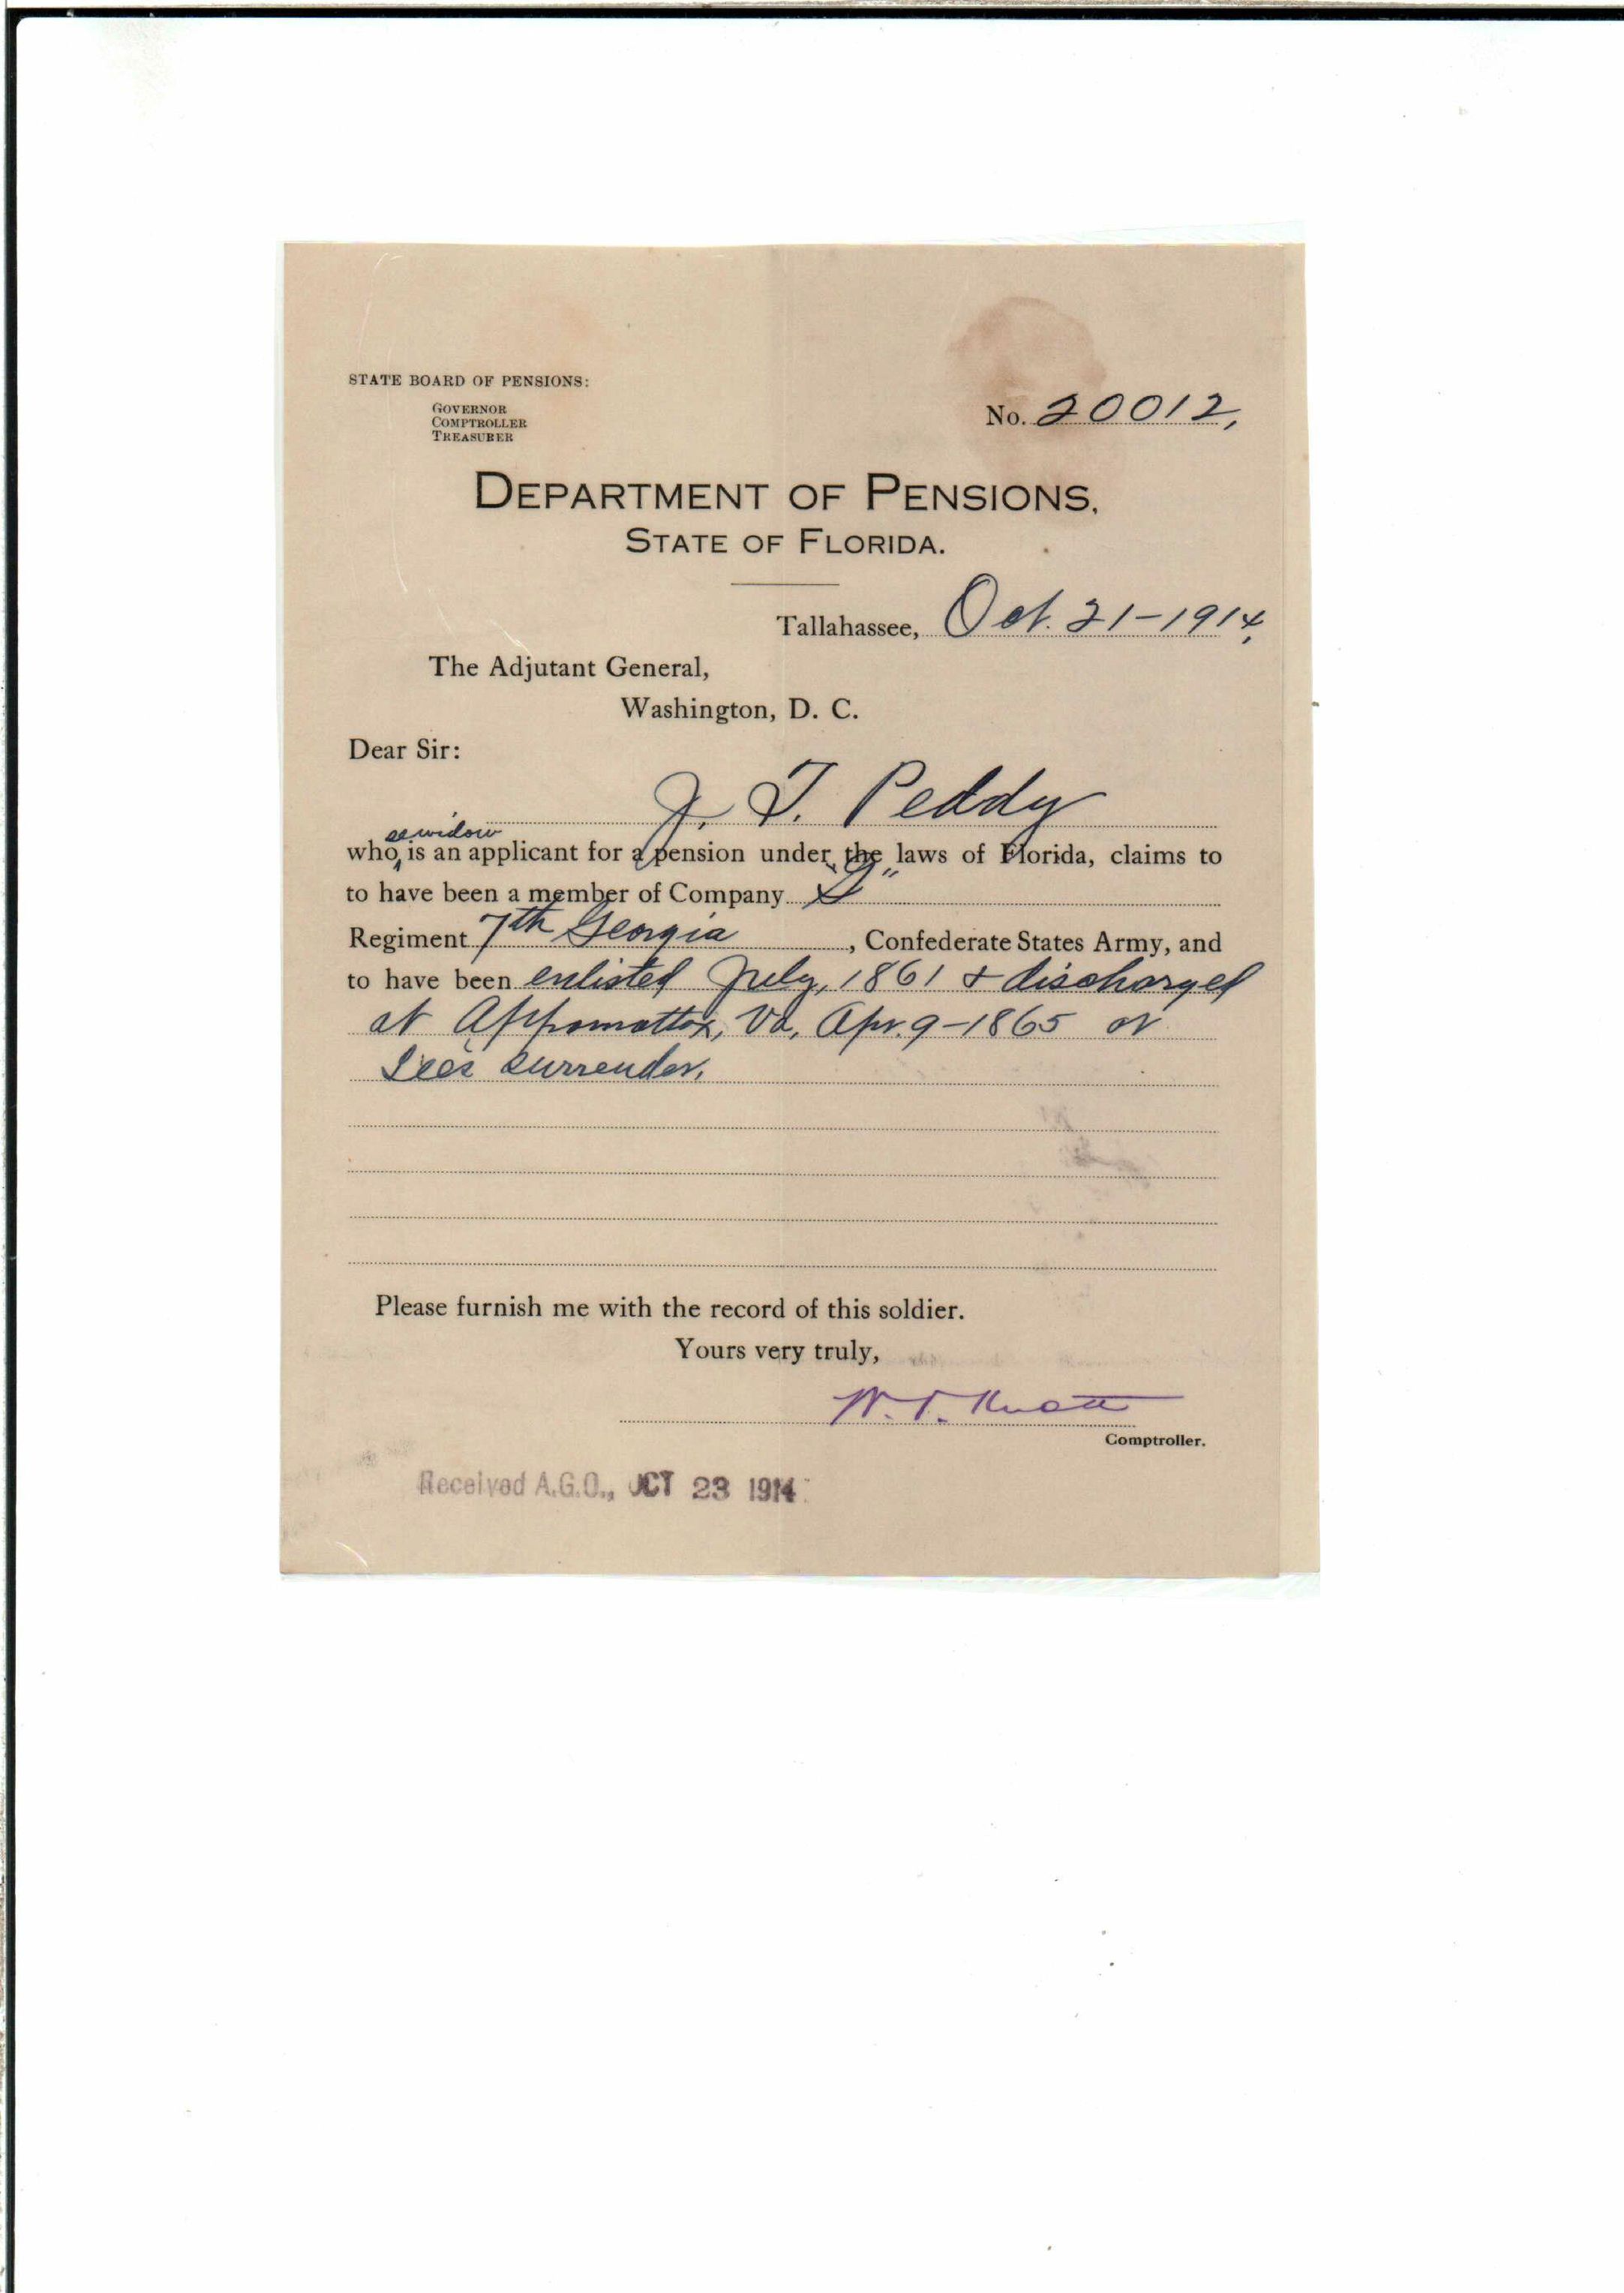 STATE BOARD OF PENSIONS:
GOVERNOR
COMPTROLLER
TREASURER
No. 20012,
DEPARTMENT OF PENSIONS,
STATE OF FLORIDA.
Tallahassee, Oct. 21-1914,
The Adjutant General,
Washington, D. C.
Dear Sir:
J. T. Peddy
widow
who is an applicant for a pension under the laws of Florida, claims to
to have been a member of Company
Regiment 7th Georgia, Confederate States Army, and
to have been enlisted July, 1861 & discharged
at Appomattox, Va, Apr. 9-1865 or
Lee's surrender.
Please furnish me with the record of this soldier.
Yours very truly,
W. V. Knott
Comptroller.
Received A.G.O., OCT 23 1914